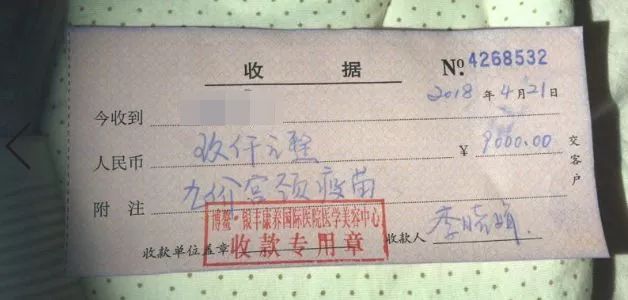 收据 № 4268532
2018 年 4 月 21 日
今收到
人民币 玖仟元整 ¥ 9000.00
附注 九价宫颈疫苗
交客户
博鳌·银丰康养国际医院医学美容中心
收款专用章
收款单位盖章 收款人 李晓娟